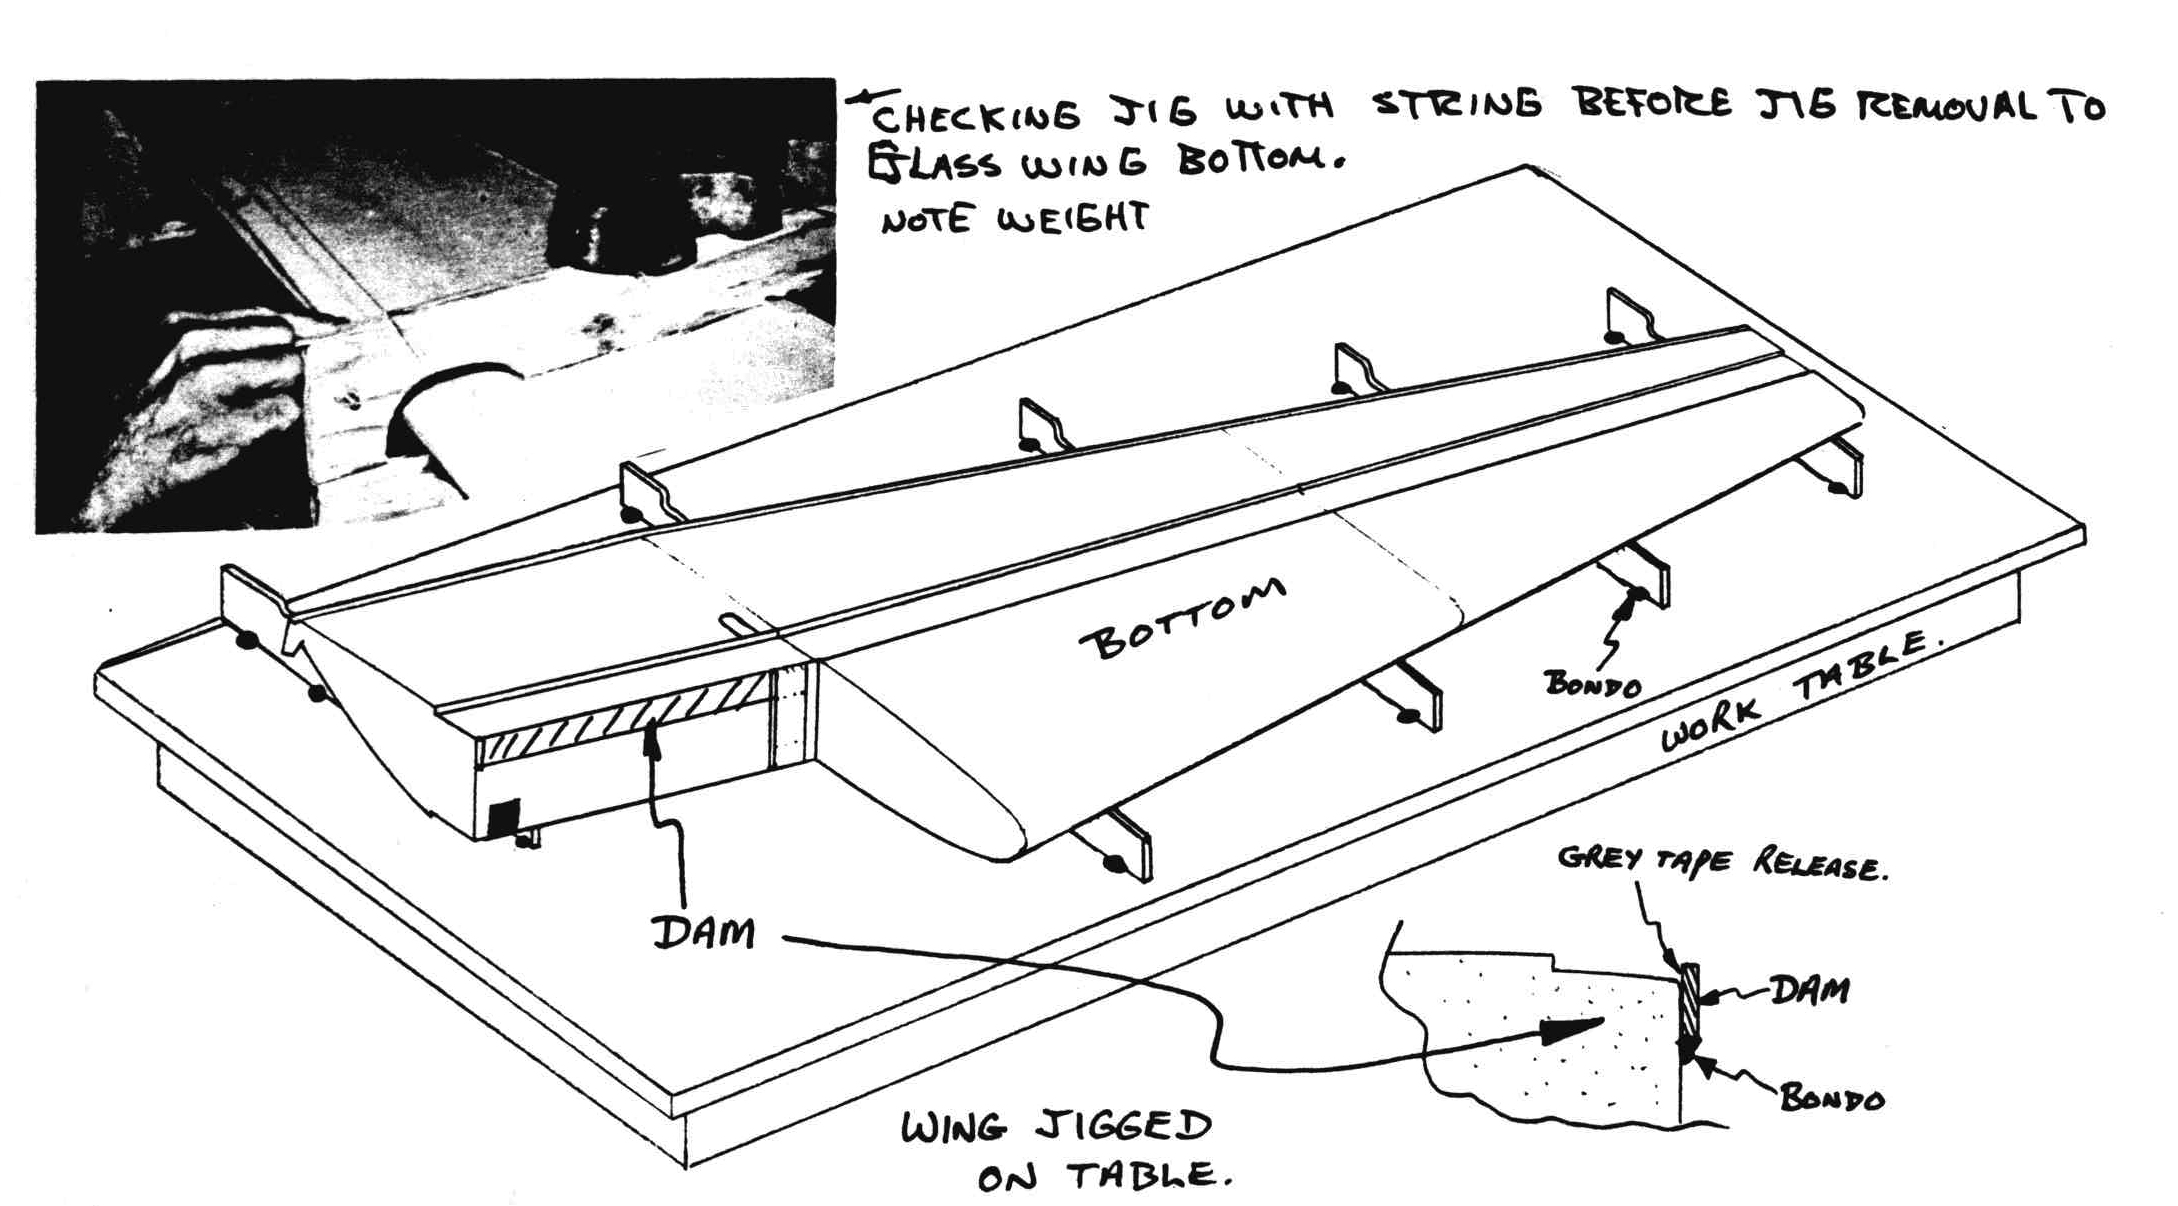 CHECKING JIG WITH STRING BEFORE JIG REMOVAL TO
GLASS WING BOTTOM.
NOTE WEIGHT
BOTTOM
BONDO
WORK TABLE.
DAM
GREY TAPE RELEASE.
DAM
BONDO
WING JIGGED
ON TABLE.